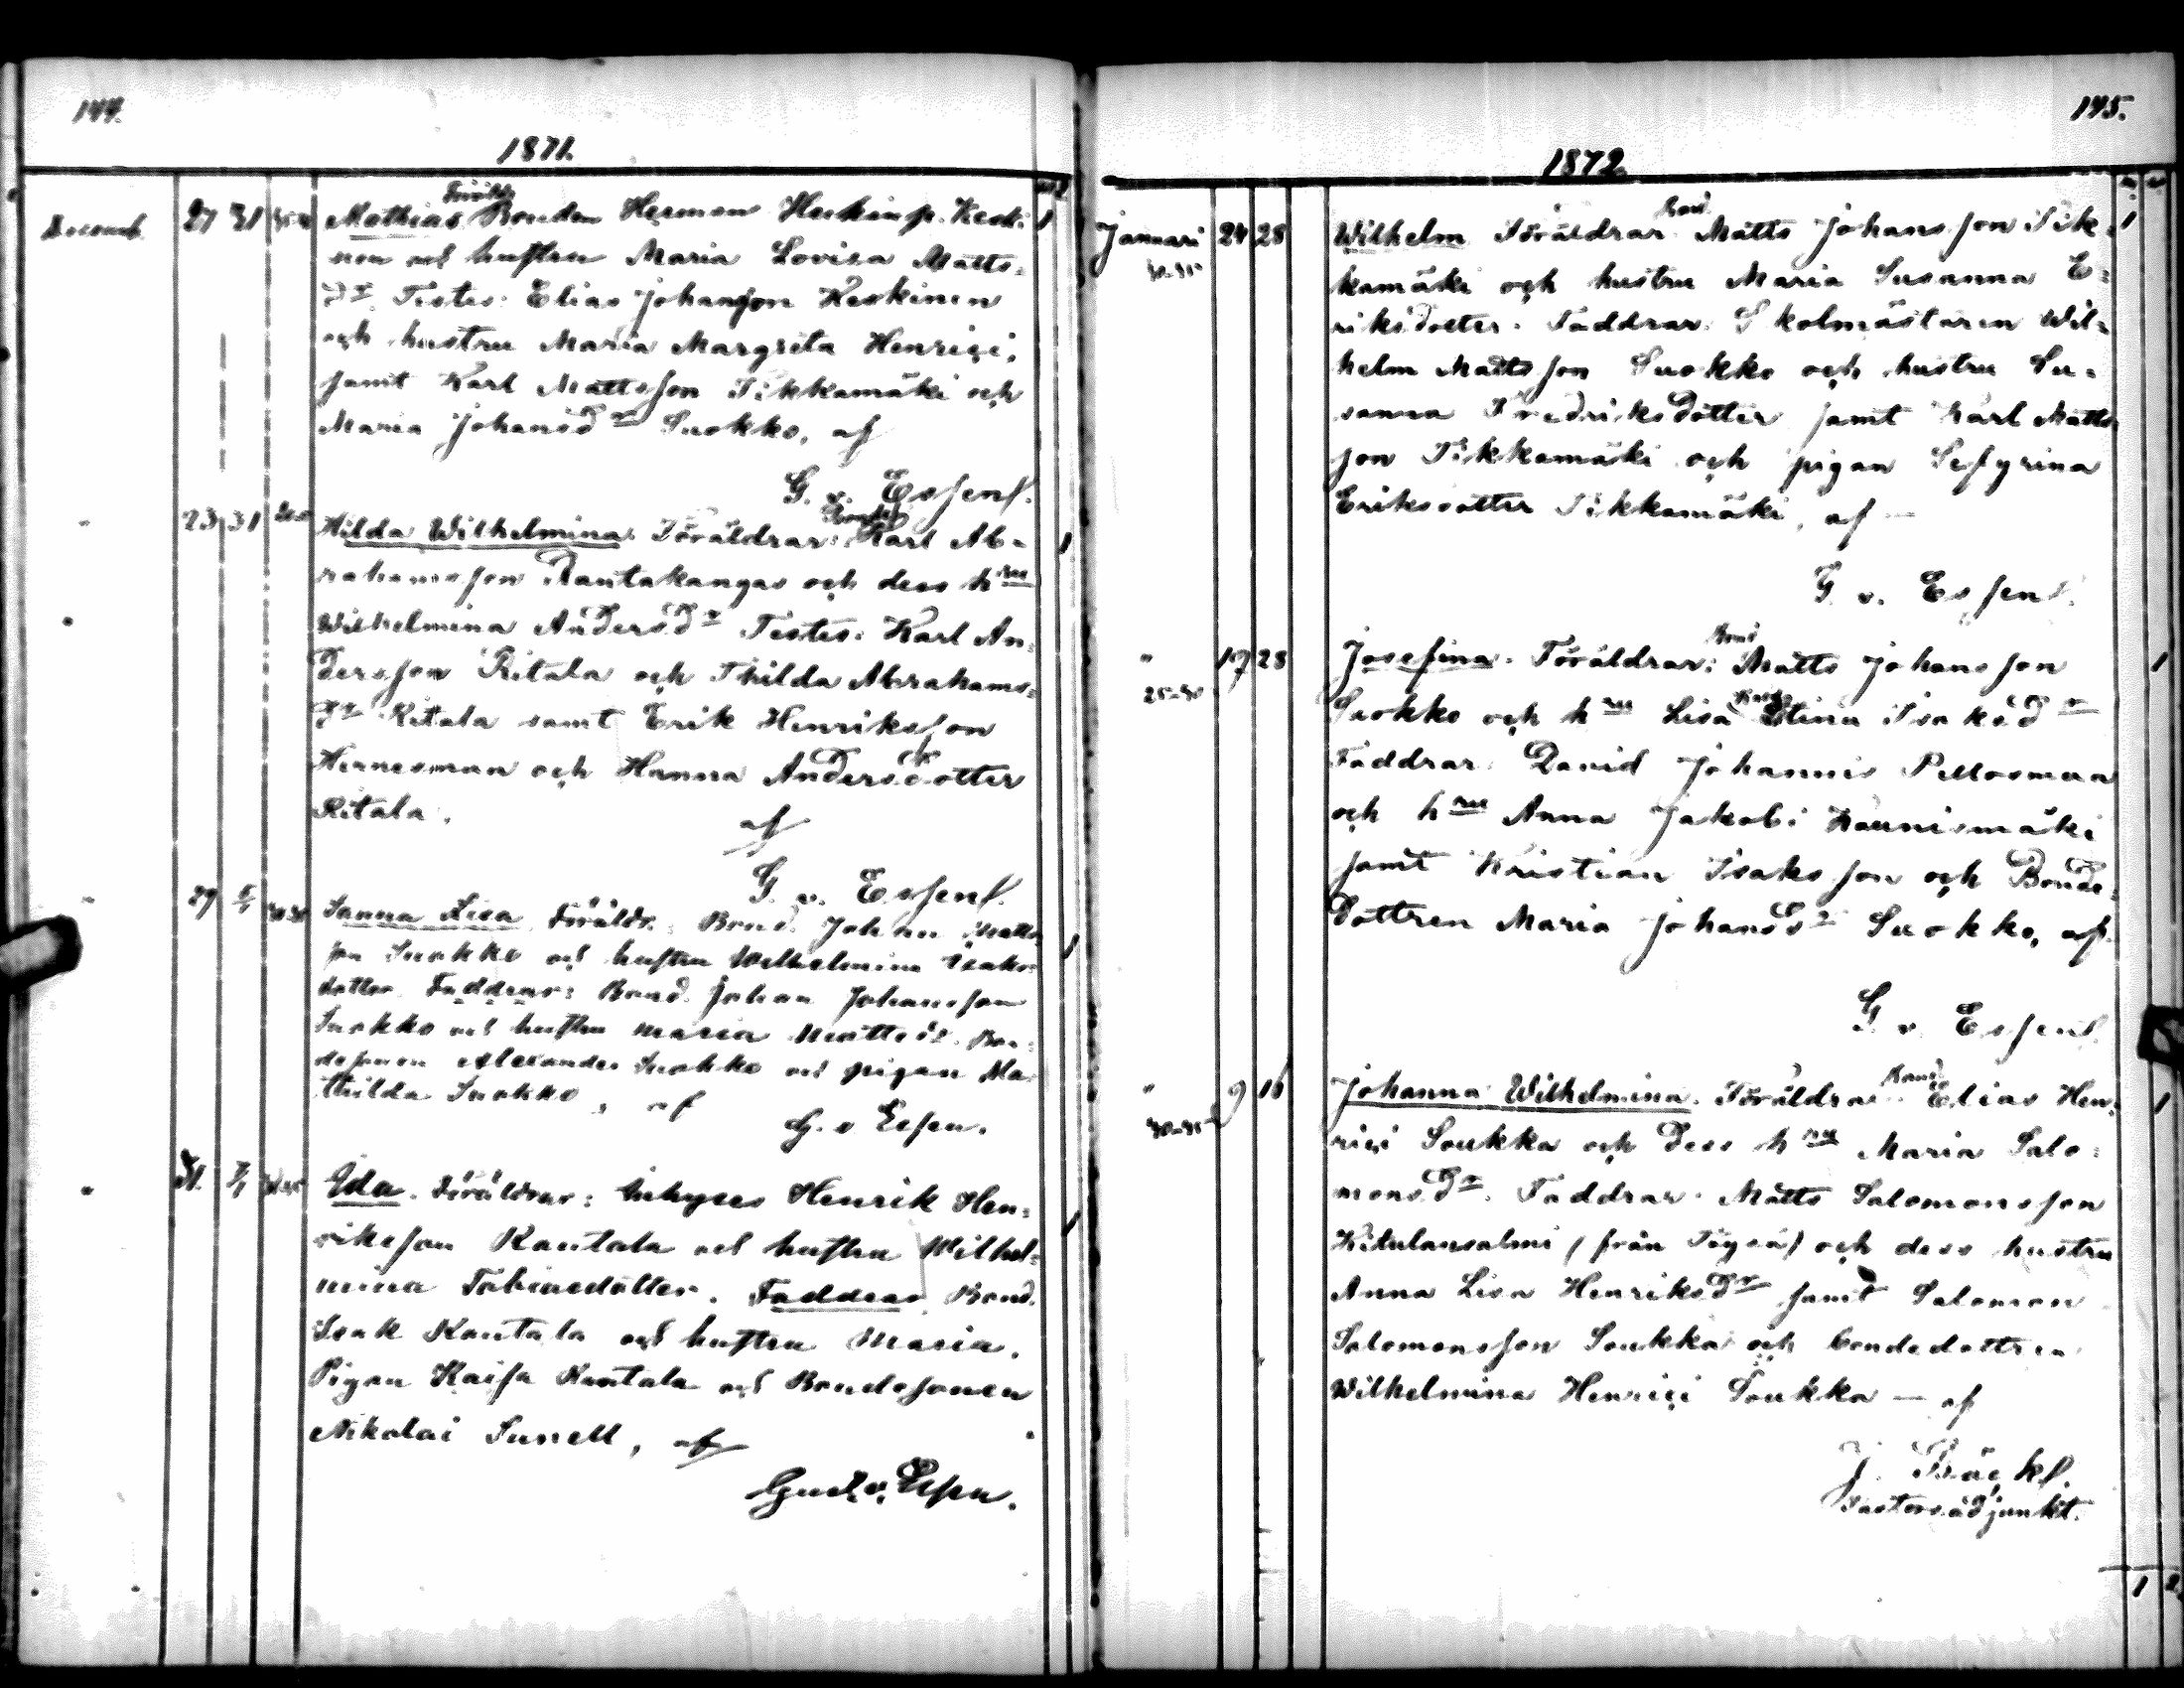 144.
1871.
Decemb. 27 31 Mathias Föräldr. Bonden Herman Henrikinp. Keski-
nen och hustru Maria Lovisa Matts-
dr. Testes: Elias Johansson Keskinen
och hustru Maria Margreta Henriçi,
samt Karl Mattsson Tikkamäki och
Maria Johansdr Suokko, af
G. v. Essen.
" 23 31 Hilda Wilhelmina. Föräldrar: Bonden Karl Ab-
rahamsson Rautakangas och dess hru
Wilhelmina Andersdr Testes: Karl An-
dersson Ritala och Thilda Abrahams-
dr Ritala samt Erik Henriksson
Hernesman och Hanna Andersdotter
Ritala, af
G. v. Essen.
" 29 Sanna Lisa Föräldr.: Bond. Johan Matts-
son Suokko och hustru Wilhelmina Isaks-
dotter Faddrar: Bond. Johan Johansson
Suokko och hustru Maria Mattsdr. Bon-
desonen Alexander Suokko och pigan Ma-
thilda Suokko, af
G. v Essen.
" 31. Ida. Föräldrar: Inhyses Henrik Hen-
riksson Rautala och hustru Wilhel-
mina Tobiasdotter. Faddrar Bond.
Isak Rautala och hustru Maria.
Pigan Kaisa Rautala och Bondesonen
Nikolai Sunell, af
Gust. v. Essen.
145.
1872.
Januari 24 28 Wilhelm Föräldrar Bond. Matts Johansson Tik-
30-35 kamäki och hustru Maria Susanna E-
riksdotter. Faddrar: Skolmästaren Wil-
helm Mattsson Suokko och hustru Su-
sanna Fredriksdotter samt Karl Matts-
son Tikkamäki och pigan Sefyrina
Eriksdotter Tikkamäki, af —
G. v. Essen.
" 17 28 Josefina. Föräldrar: Bond. Matts Johansson
25-30 Suokko och hru Lisa Stina Isaksdr
Faddrar: David Johannis Pellosman
och hru Anna Jakobi Kaunismäki
samt Kristian Isaksson och Bonde-
dottren Maria Johansdr Suokko, af
G. v. Essen.
" 9 16 Johanna Wilhelmina. Föräldrar: Bond. Elias Hen-
30-35 riçi Soukka och dess hru Maria Salo-
monsdr. Faddrar: Matts Salomonsson
Kitulansalmi (från Töysä) och dess hustru
Anna Lisa Henriksdr samt Salomon
Salomonsson Soukka och bondedottren
Wilhelmina Henriçi Soukka — af
J. Bäck.
Pastorsadjunkt.